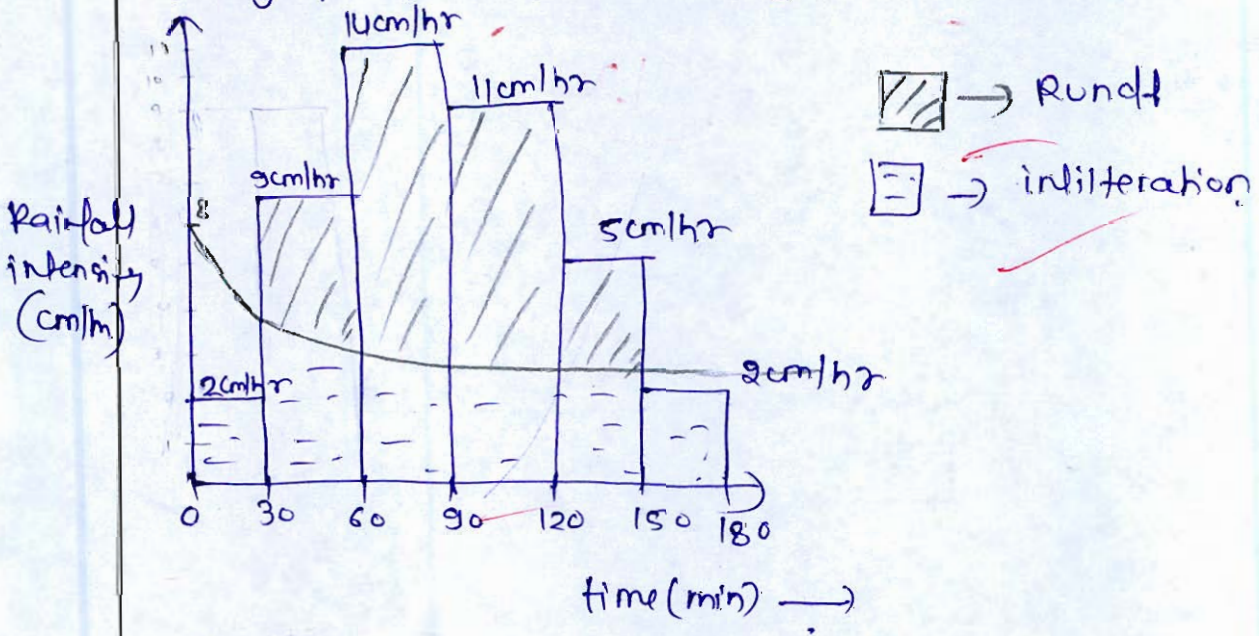 14cm/hr
11cm/hr
Runoff
9cm/hr
infilteration
8
Rainfall
5cm/hr
intensity
(cm/h)
2cm/hr
2cm/hr
0 30 60 90 120 150 180
time (min)